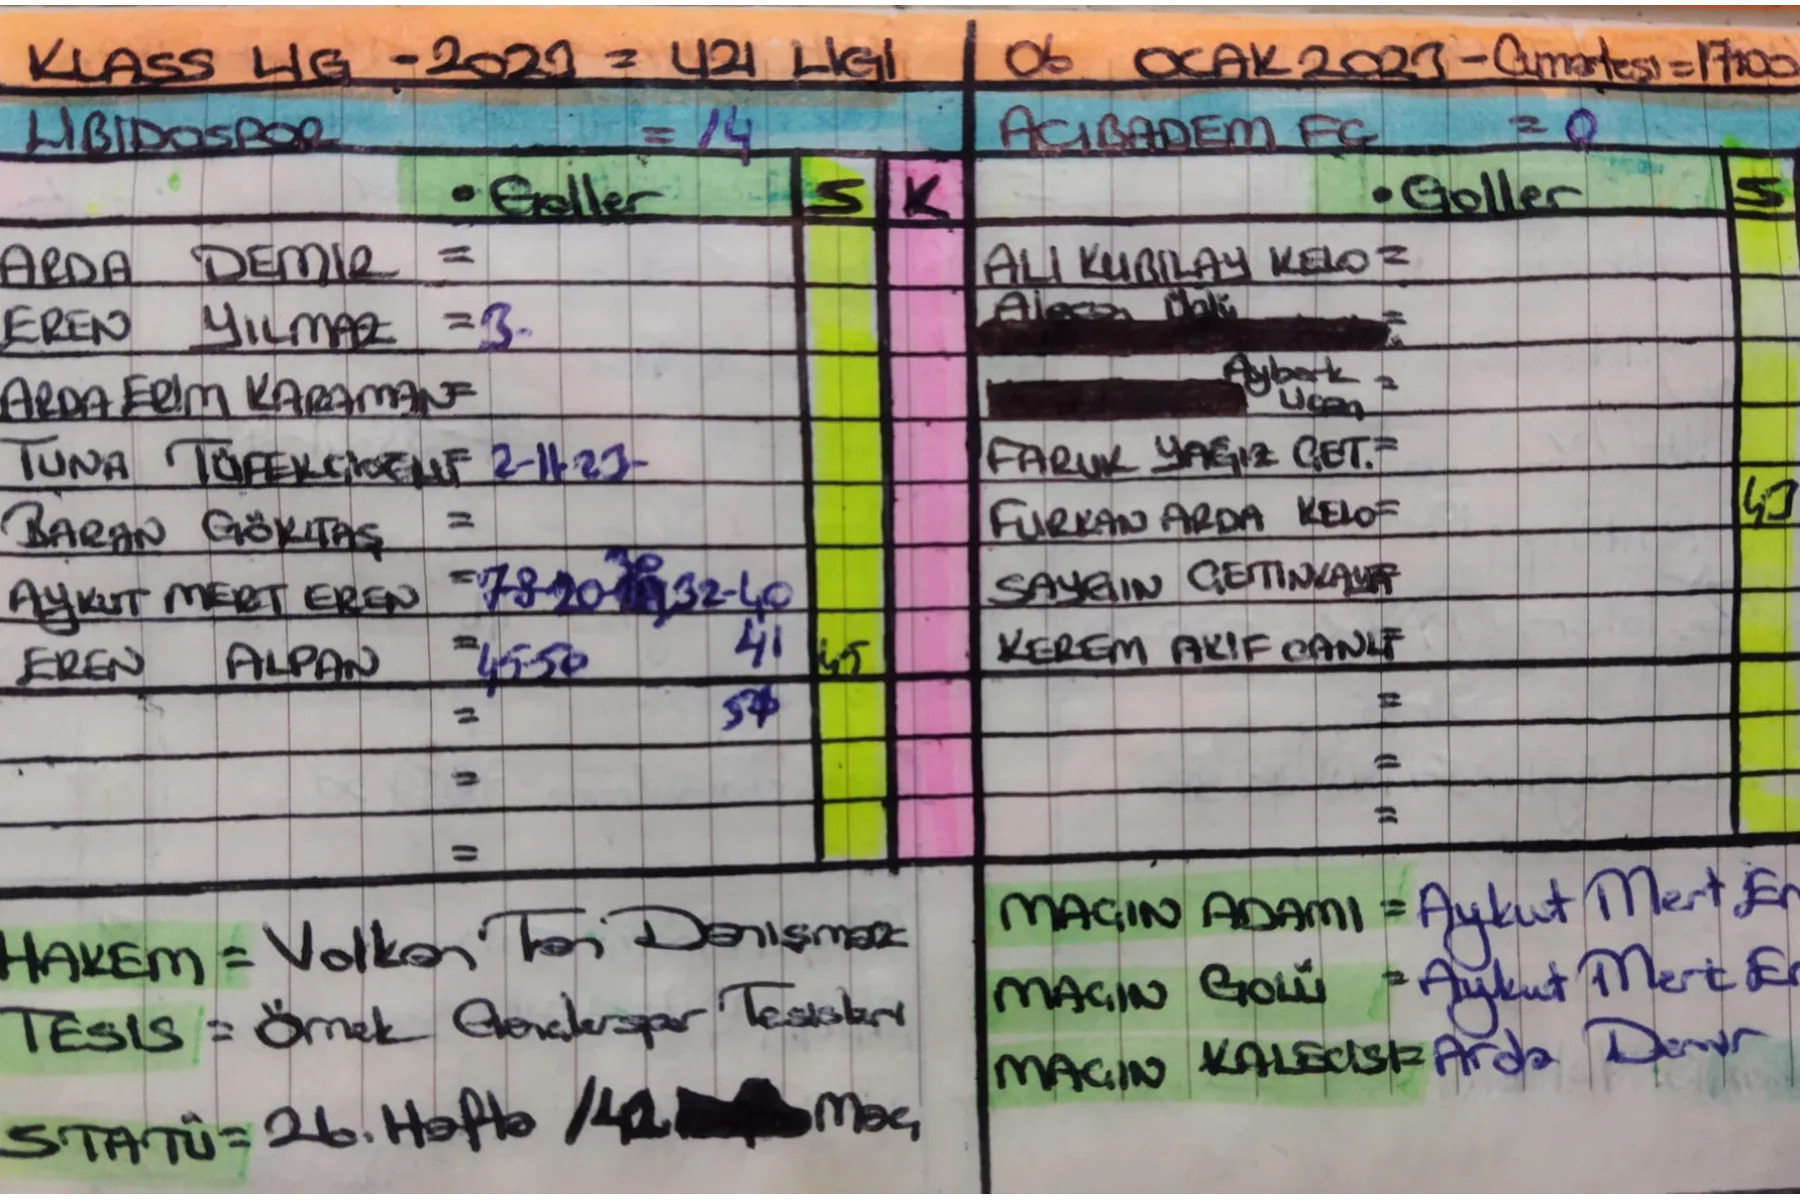 KLASS LİG - 2023 = 421 LİGİ
06 OCAK 2023 - Cumartesi = 17:00
LİBİDOSPOR = 14
ACIBADEM FC = 0
• Goller S K
• Goller S
ARDA DEMİR =
EREN YILMAZ = 3-
ARDA ERİM KARAMAN =
TUNA TÜFEKÇİ = 2-11-23-
BARAN GÖKTAŞ =
AYKUT MERT EREN = 7-8-20- 32-40
41
EREN ALPAN = 45-50 45
=
=
=
ALİ KUBİLAY KELO =
=
Ayberk Uçan =
FARUK YAĞIZ ÇET. =
FURKAN ARDA KELO = 43
SAYGIN ÇETİNKAYA =
KEREM AKİF CANLI =
=
=
=
HAKEM = Volkan Tan Danışmaz
TESİS = Örnek Gençlerspor Tesisleri
STATÜ = 26. Hafta / 42. Maç
MAÇIN ADAMI = Aykut Mert Er
MAÇIN GOLÜ = Aykut Mert Er
MAÇIN KALECİSİ = Arda Demir